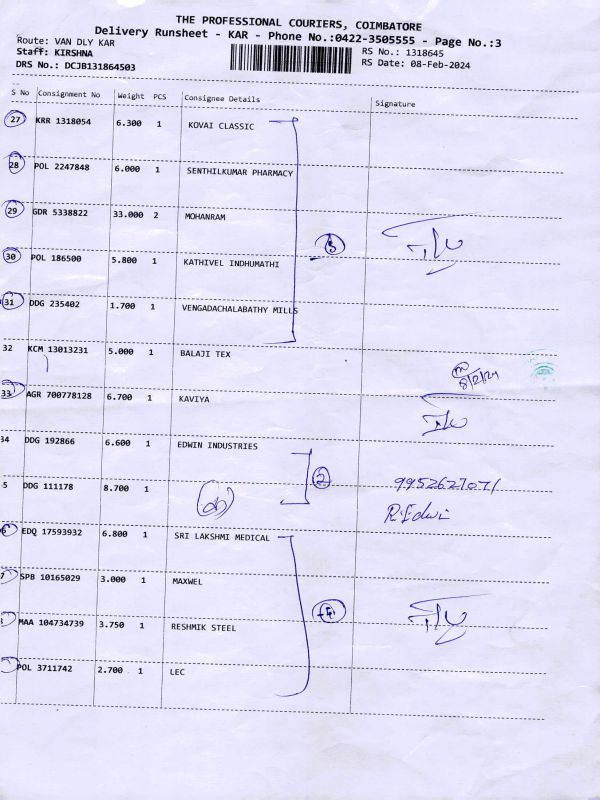 THE PROFESSIONAL COURIERS, COIMBATORE
Delivery Runsheet - KAR - Phone No.:0422-3505555 - Page No.:3
Route: VAN DLY KAR
Staff: KIRSHNA
RS No.: 1318645
DRS No.: DCJB131864503
RS Date: 08-Feb-2024
S No Consignment No Weight PCS Consignee Details Signature
27 KRR 1318054 6.300 1 KOVAI CLASSIC
28 POL 2247848 6.000 1 SENTHILKUMAR PHARMACY
29 GDR 5338822 33.000 2 MOHANRAM
5
30 POL 186500 5.800 1 KATHIVEL INDHUMATHI
31 DDG 235402 1.700 1 VENGADACHALABATHY MILLS
32 KCM 13013231 5.000 1 BALAJI TEX
8/2/24
33 AGR 700778128 6.700 1 KAVIYA
34 DDG 192866 6.600 1 EDWIN INDUSTRIES
2
5 DDG 111178 8.700 1
9952627071
R.Edwin
6 EDQ 17593932 6.800 1 SRI LAKSHMI MEDICAL
7 SPB 10165029 3.000 1 MAXWEL
4
MAA 104734739 3.750 1 RESHMIK STEEL
POL 3711742 2.700 1 LEC